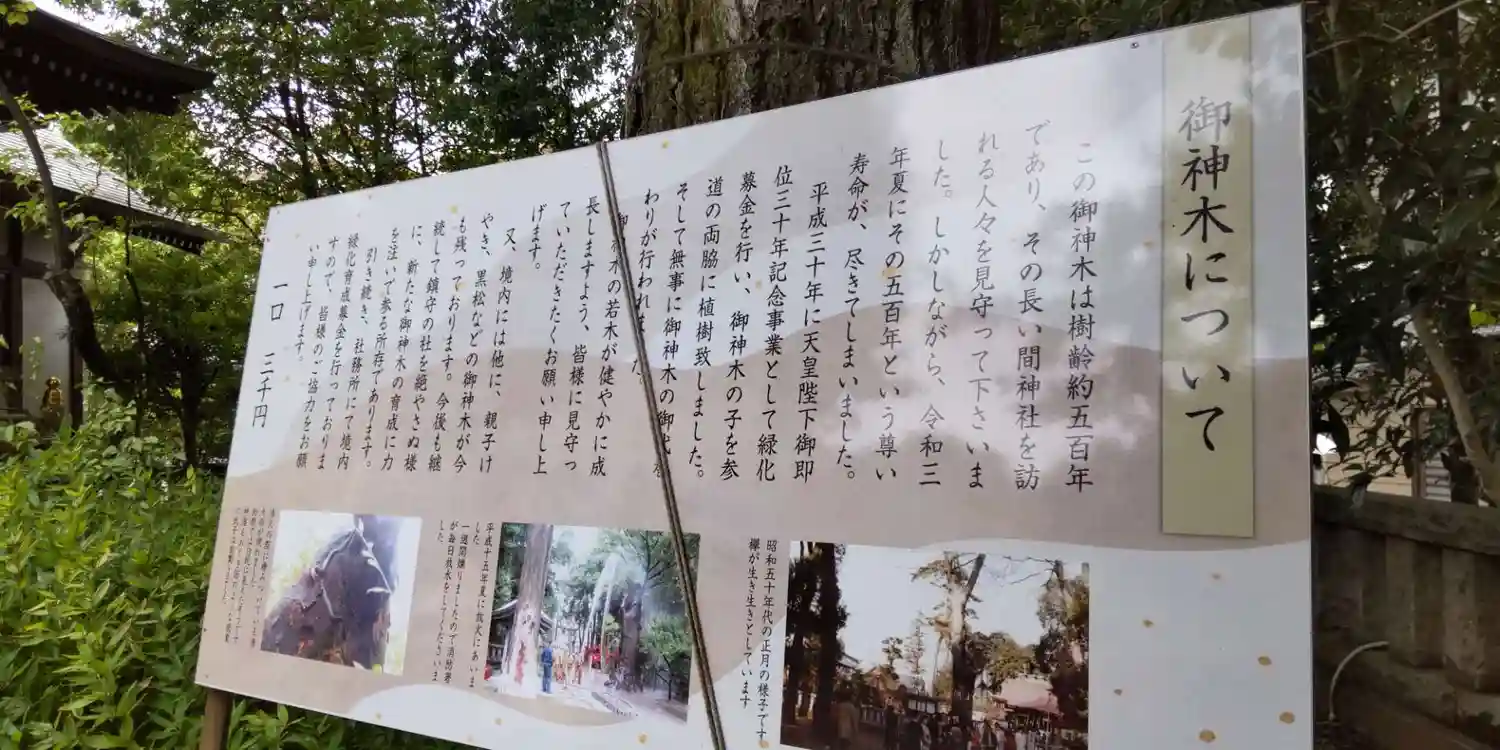 御神木について
この御神木は樹齢約五百年
であり、その長い間神社を訪
れる人々を見守って下さいま
した。しかしながら、令和三
年夏にその五百年という尊い
寿命が、尽きてしまいました。
平成三十年に天皇陛下御即
位三十年記念事業として緑化
募金を行い、御神木の子を参
道の両脇に植樹致しました。
そして無事に御神木の御代
わりが行われました。
御神木の若木が健やかに成
長しますよう、皆様に見守っ
ていただきたくお願い申し上
げます。
又、境内には他に、親子け
やき、黒松などの御神木が今
も残っております。今後も継
続して鎮守の社を絶やさぬ様
に、新たな御神木の育成に力
を注いで参る所存であります。
引き続き、社務所にて境内
緑化育成募金を行っておりま
すので、皆様のご協力をお願
い申し上げます。
一口 三千円
昭和五十年代の正月の様子です
欅が生き生きとしています
平成十五年夏に放火にあいま
した
一週間燻りましたので消防署
が毎日放水をしてくださいま
した